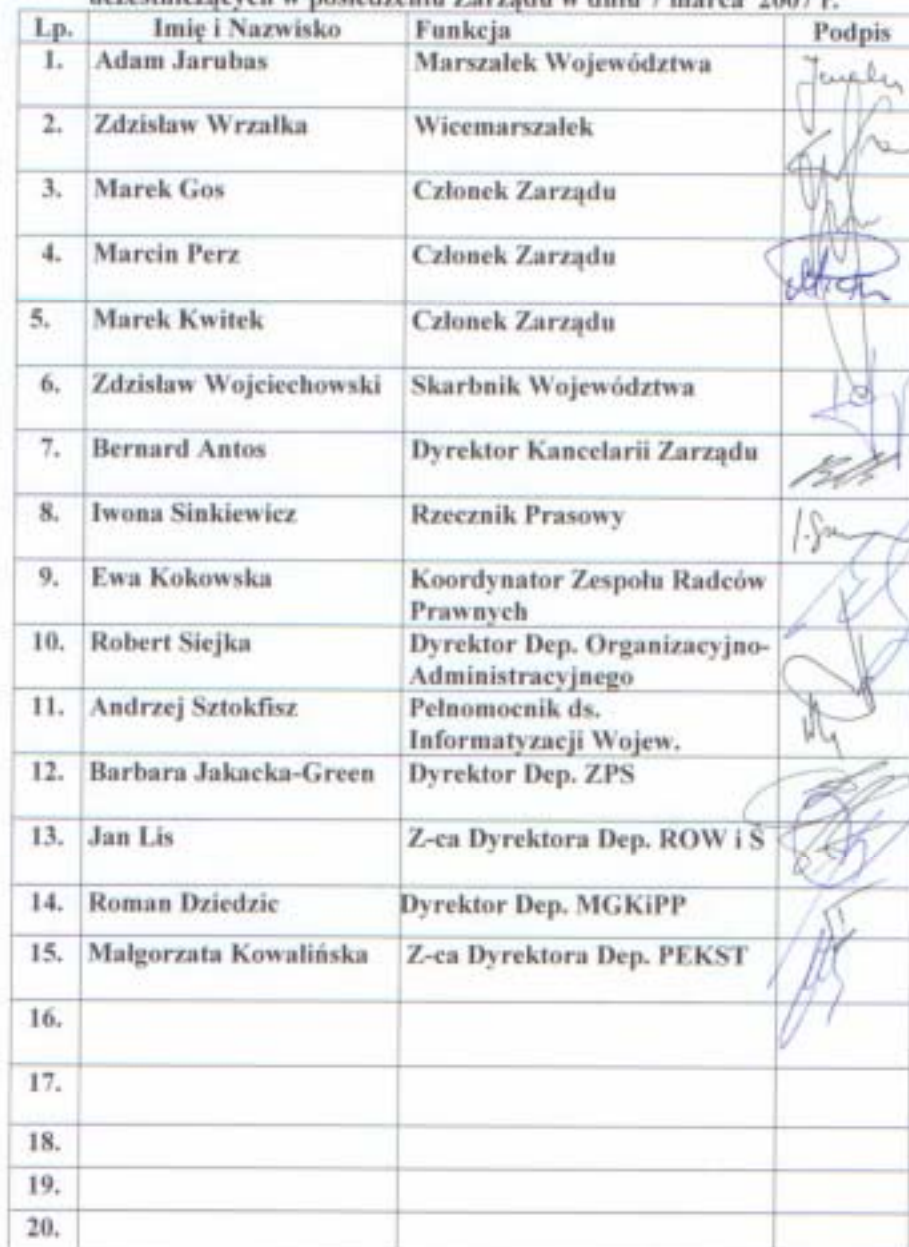 uczestniczących w posiedzeniu Zarządu w dniu 7 marca 2007 r.
Lp. Imię i Nazwisko Funkcja Podpis
1. Adam Jarubas Marszałek Województwa
2. Zdzisław Wrzałka Wicemarszałek
3. Marek Gos Członek Zarządu
4. Marcin Perz Członek Zarządu
5. Marek Kwitek Członek Zarządu
6. Zdzisław Wojciechowski Skarbnik Województwa
7. Bernard Antos Dyrektor Kancelarii Zarządu
8. Iwona Sinkiewicz Rzecznik Prasowy
9. Ewa Kokowska Koordynator Zespołu Radców
Prawnych
10. Robert Siejka Dyrektor Dep. Organizacyjno-
Administracyjnego
11. Andrzej Sztokfisz Pełnomocnik ds.
Informatyzacji Wojew.
12. Barbara Jakacka-Green Dyrektor Dep. ZPS
13. Jan Lis Z-ca Dyrektora Dep. ROW i Ś
14. Roman Dziedzic Dyrektor Dep. MGKiPP
15. Małgorzata Kowalińska Z-ca Dyrektora Dep. PEKST
16.
17.
18.
19.
20.